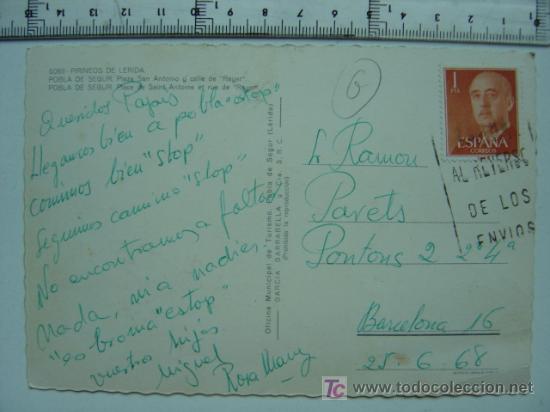 5089 - PIRINEOS DE LERIDA
POBLA DE SEGUR. Plaza San Antonio y calle de "Rayer"
POBLA DE SEGUR. Place de Saint Antoine et rue de "Rayer"
Queridos Papas
Llegamos bien a pobla "estop"
comimos bien "stop"
Seguimos camino "stop"
No encontramos a faltar
nada, ni a nadie.
"es broma" "estop"
vuestro hijos
Miguel
Rosa Mary
Oficina Municipal de Turismo. Pobla de Segur (Lérida)
GARCIA GARRABELLA y Cía. S.R.C.
(Prohibida la reproducción)
6
1
PTA
ESPAÑA
CORREOS
AL REVERSO
DE LOS
ENVIOS
Sr Ramon
Parets
Pontons 2 2 4ª
Barcelona 16
25-6-68
todocoleccion
www.todocoleccion.net